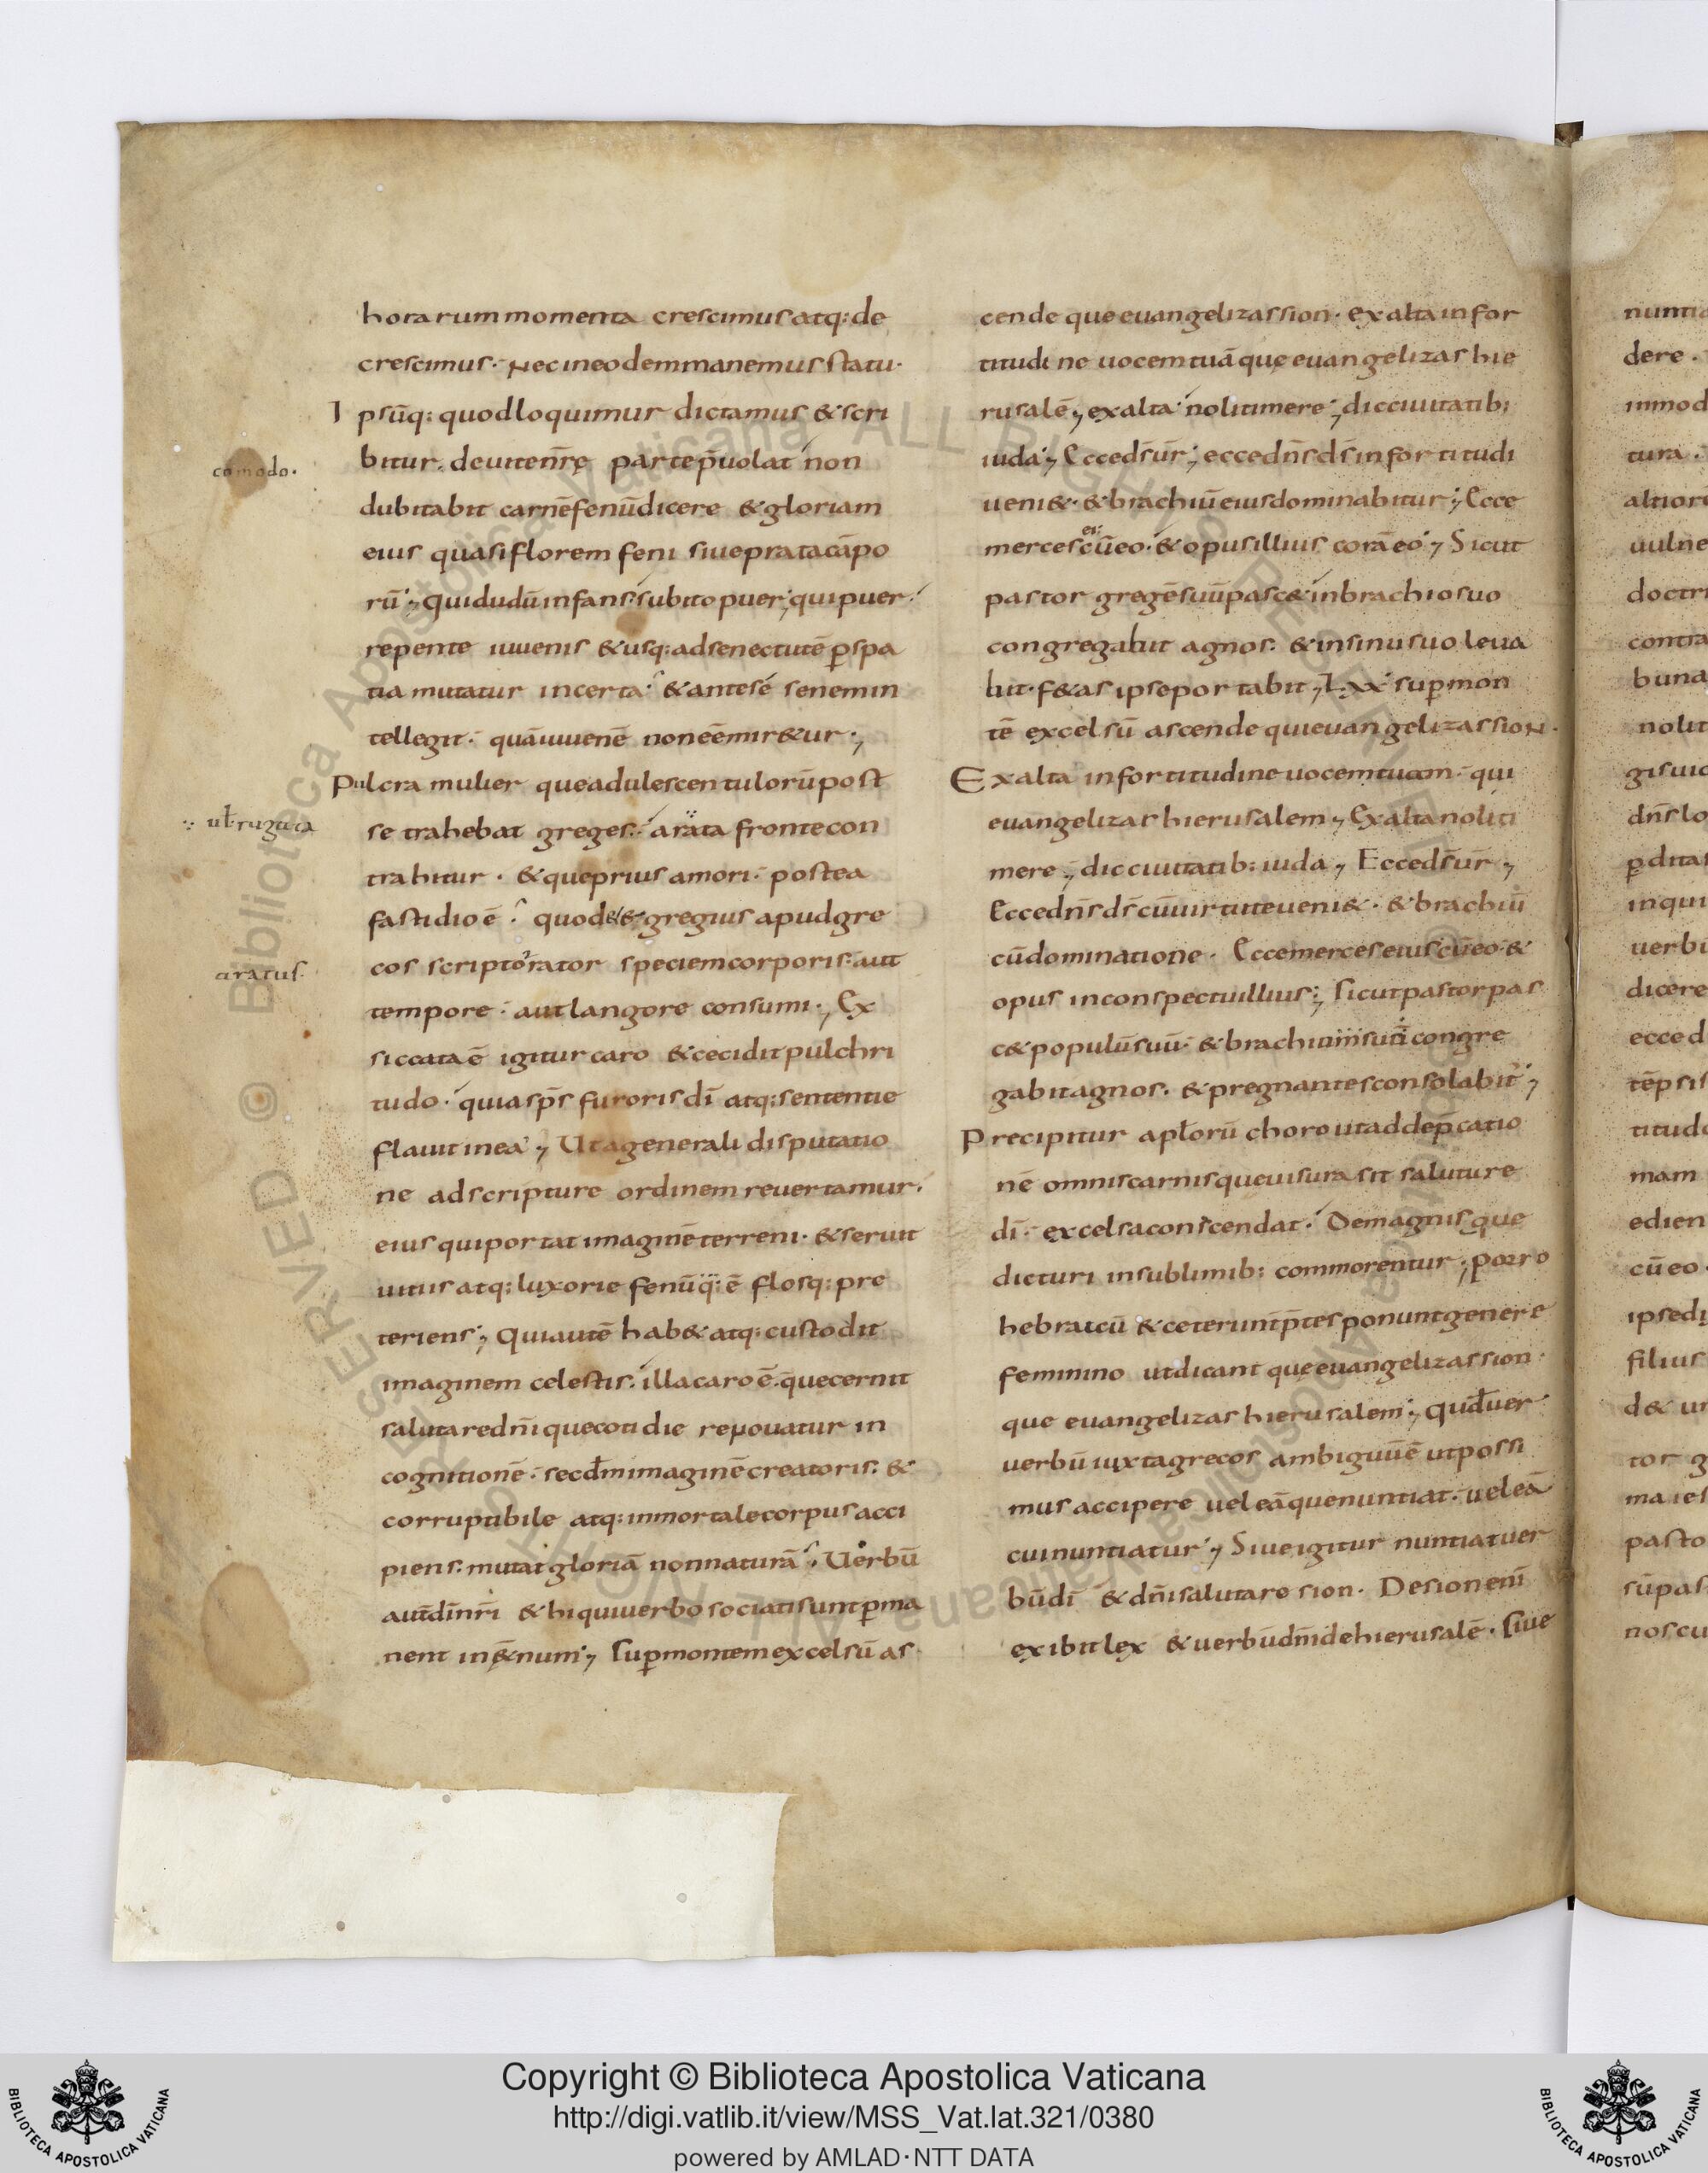 horarum momenta crescimus atq: de
crescimus. Nec in eodem manemus statu.
Ipsūq: quod loquimur dictamus & scri
bitur. de uitenrę parte p̄uolat non
dubitabit carnē fenū dicere & gloriam
eius quasi florem feni siue prata cāpo
rū; Qui dudū infans. subito puer; qui puer.
repente iuuenis & usq: ad senectutē p̱spa
tia mutatur incerta. & ante sē senem in
tellegit. quā iuuenē non eē mir&ur;
Pulcra mulier que adulescentulorū post
se trahebat greges. arata fronte con
trahitur. & que prius amori. postea
fastidio ē. quod & egregius apud gre
cos scriptor rator speciem corporis. aut
tempore. aut langore consumi; Ex
siccata ē igitur caro & cecidit pulchri
tudo. quia sp̄s furoris dī atq: sententie
flauit in ea; Ut a generali disputatio
ne ad scripture ordinem reuertamur.
eius qui portat imaginē terreni. & seruit
uitiis atq: luxorie fenū q: ē flosq: pre
teriens; Qui autē hab& atq: custodit
imaginem celestis. illa caro ē. que cernit
salutare dn̄i que cotidie renouatur in
cognitionē. secdm imaginē creatoris. &
corruptibile atq: inmortale corpus acci
piens. mutat gloriā non naturā. Uerbū
aut dīnr̄i & hi qui uerbo sociati sunt p̱ma
nent in &̄num; Sup̱ montem excelsū as
cende que euangelizas sion. exalta in for
titudine uocem tuā que euangelizas hie
rusalē; exalta noli timere; dic ciuitatib:
iuda; Ecce ds̄ ur̄; ecce dn̄s ds̄ in fortitudi
ueni&. & brachiū eius dominabitur; Ecce
merces ei: cū eo. & opus illius corā eo; Sicut
pastor gregē suū pasc& in brachio suo
congregabit agnos. & in sinu suo leua
bit. f&as ipse portabit; Lxx sup̱ mon
tē excelsū ascende qui euangelizas sion.
Exalta in fortitudine uocem tuam. qui
euangelizas hierusalem; Exalta noli ti
mere; dic ciuitatib: iuda; Ecce ds̄ ur̄;
Ecce dn̄s ds̄ cū uirtute ueni&. & brachiū
cū dominatione. Ecce merces eius cū eo. &
opus in conspectu illius; Sicut pastor pas
c& populū suū. & brachium suū congre
gabit agnos. & pregnantes consolabit;
Precipitur apl̄orū choro ut ad dep̄catio
nē omnis carnis que uisura sit saluture
dī. excelsa conscendat. De magnisque
dicturi in sublimib: commorentur; porro
hebraicū & ceteri int̄p̄tes ponunt genere
feminino ut dicant que euangelizas sion.
que euangelizas hierusalem; Quid uer
uerbū iuxta grecos ambiguū ē ut possi
mus accipere uel eā que nuntiat. uel eā
cui nuntiatur; Siue igitur nuntiat uer
bū dī & dn̄i salutare sion. De sion enī
exibit lex & uerbū dn̄i de hierusalē. siue
comodo.
ul rugata
aratus.
Copyright © Biblioteca Apostolica Vaticana
http://digi.vatlib.it/view/MSS_Vat.lat.321/0380
powered by AMLAD·NTT DATA
BIBLIOTECA APOSTOLICA VATICANA
BIBLIOTECA APOSTOLICA VATICANA